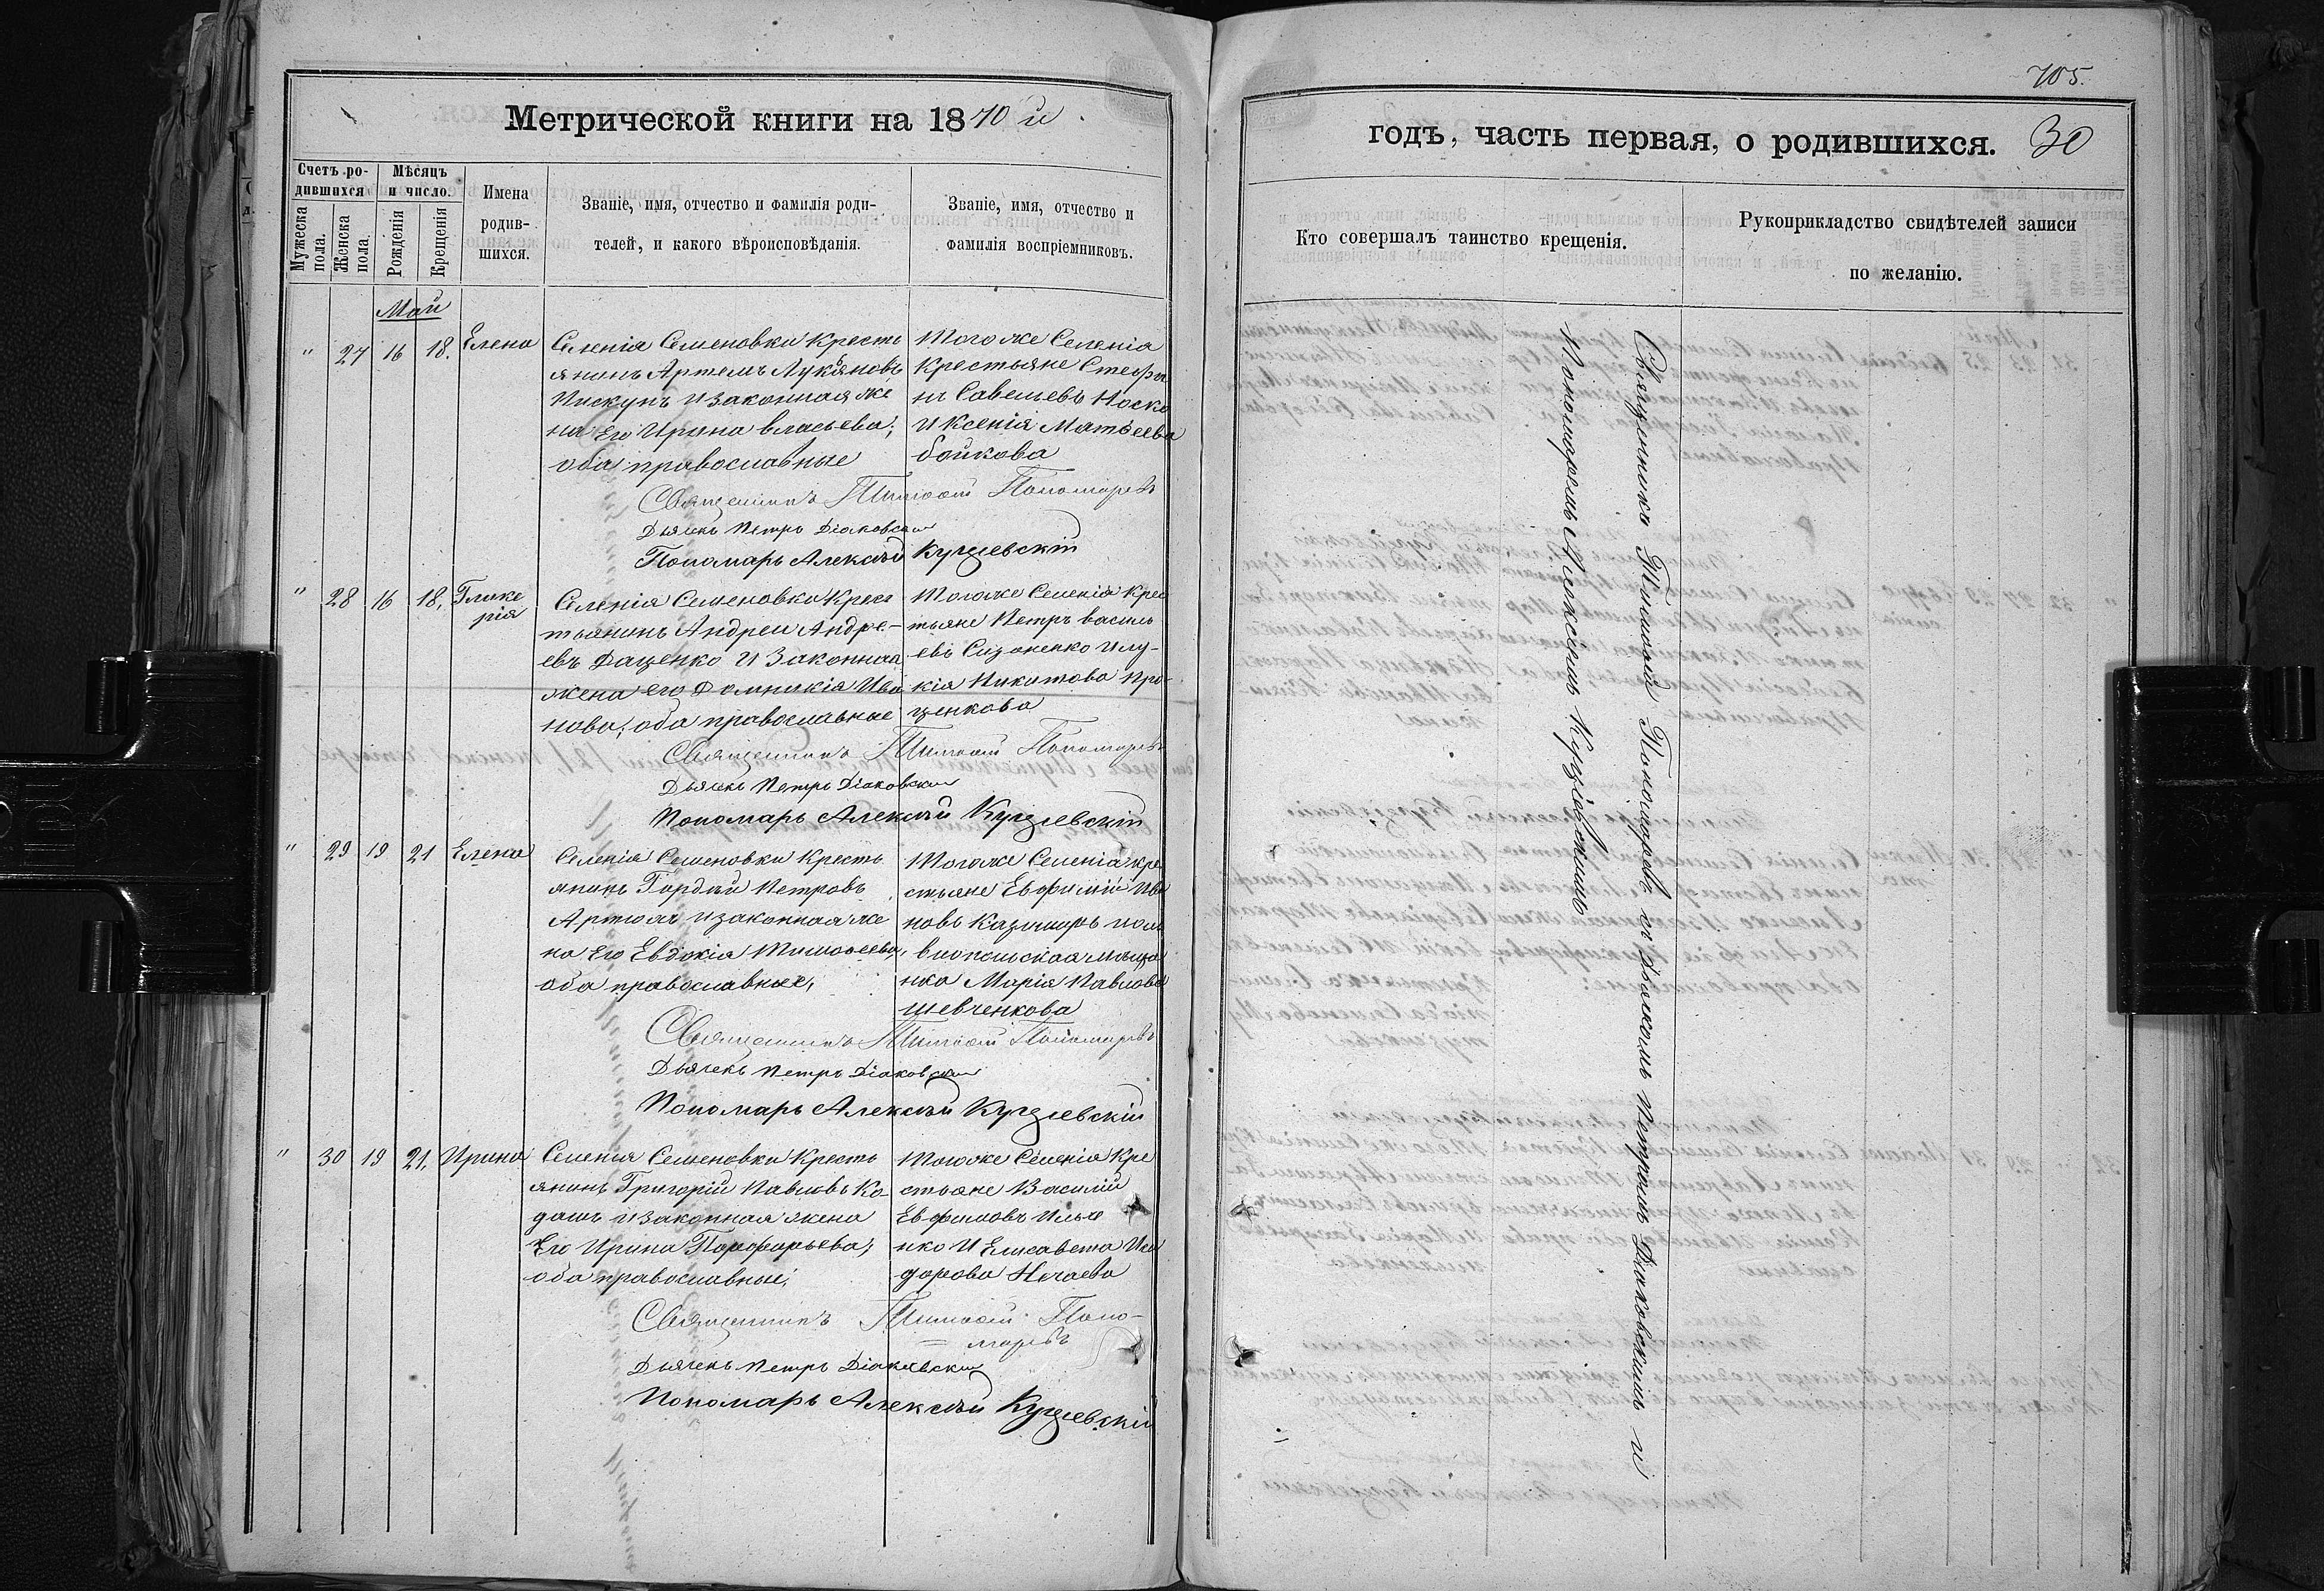 705.
Метрической книги на 1870й
годъ, часть первая, о родившихся. 30
Счетъ ро-
дившихся
Мужеска
пола.
Женска
пола.
Мѣсяцъ
и число.
Рожденія
Крещенія
Имена
родив-
шихся.
Званіе, имя, отчество и фамилія роди-
телей, и какого вѣроисповѣданія.
Званіе, имя, отчество и
фамилія воспріемниковъ.
Кто совершалъ таинство крещенія.
Рукоприкладство свидѣтелей записи
по желанію.
Май
" 27 16 18. Елена
Селенія Семеновки Кресть
янинъ Артемъ Лукьяновъ
Пискунъ и законная же
на Его Ирина Власьева;
оба православные
Тогоже Селенія
Крестьяне Стефа
нъ Савельевъ Носко
и Ксенія Матѳеева
бойкова
Священникъ Тимоѳей Пономаревъ
Дьячекъ Петръ Діаковскій
Пономарь Алексѣй Кущевскій
" 28 16 18. Глике
рія
Селенія Семеновки Крес
тьянинъ Андрей Андре-
евъ Даценко и Законная
жена его Домникія Ива
нова; оба православные
Тогоже Селенія Крес
тьяне Петръ Василь
евъ Сизоненко и лу-
кія Никитова Про-
ценкова
Священникъ Тимоѳей Пономаревъ
Дьячекъ Петръ Діаковскій
Пономарь Алексѣй Кущевскій
" 29 19 21 Елена
Селенія Семеновки Кресть
янинъ Гордѣй Петровъ
Артюхъ и законная же
на Его Евдокія Тимоѳеева;
оба православные,
Тогоже Селенія кре
стьяне Евфимій Ива
новъ Казимиръ
нка Марія Павлова
шевченкова
Священникъ Тимоѳей Пономаревъ
Дьячекъ Петръ Діаковскій
Пономарь Алексѣй Кущевскій
" 30 19 21. Ирина
Селенія Семеновки Кресть
янинъ Григорій Павловъ Ко
дашъ и законная жена
Его Ирина Порфирьева;
оба православные;
Тогоже Селенія Кре
стьяне Василій
Евфимовъ Илье
нко и Елисавета Иси
дорова Нечаева
Священникъ Тимоѳей Поно-
маревъ
Дьячекъ Петръ Діаковскій
Пономарь Алексѣй Кущевскій
Священникъ Тимоѳей Пономаревъ съ дьячкомъ Петромъ Діаковскимъ и
Пономаремъ Алексѣемъ Кущевскимъ